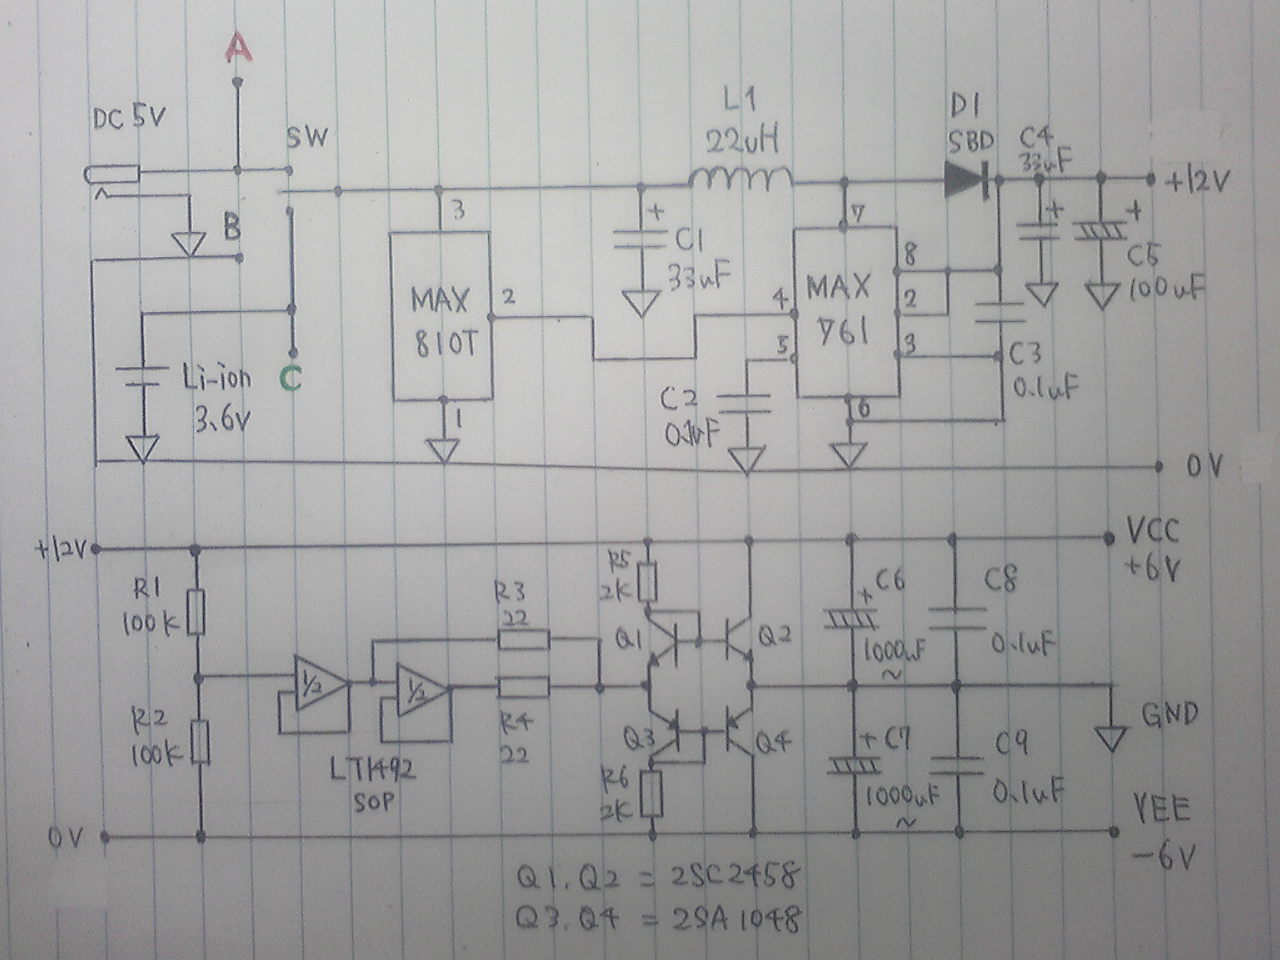 A
DC 5V
SW
L1
22uH
D1
SBD
C4
33uF
+12V
B
3
+
C1
33uF
7
8
+
+
C5
100uF
MAX
810T
2
4
MAX
761
2
5
3
C3
0.1uF
Li-ion
3.6V
C
1
C2
0.1uF
6
0V
+12V
VCC
+6V
R1
100K
R5
2K
R3
22
Q1
Q2
+
C6
1000uF
~
C8
0.1uF
1/2
1/2
R2
100K
LT1492
SOP
R4
22
Q3
Q4
R6
2K
+
C7
1000uF
~
C9
0.1uF
GND
0V
VEE
-6V
Q1.Q2 = 2SC2458
Q3.Q4 = 2SA1048